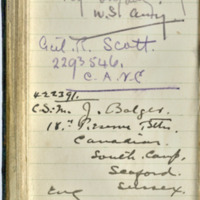 W.S.
Geil. R. Scott.
2293546.
C. A. V. C
422391.
C.S.M. J. Bolger.
18th Reserve Bttn.
Canadians.
South Camp,
Seaford
Sussex.
Eng